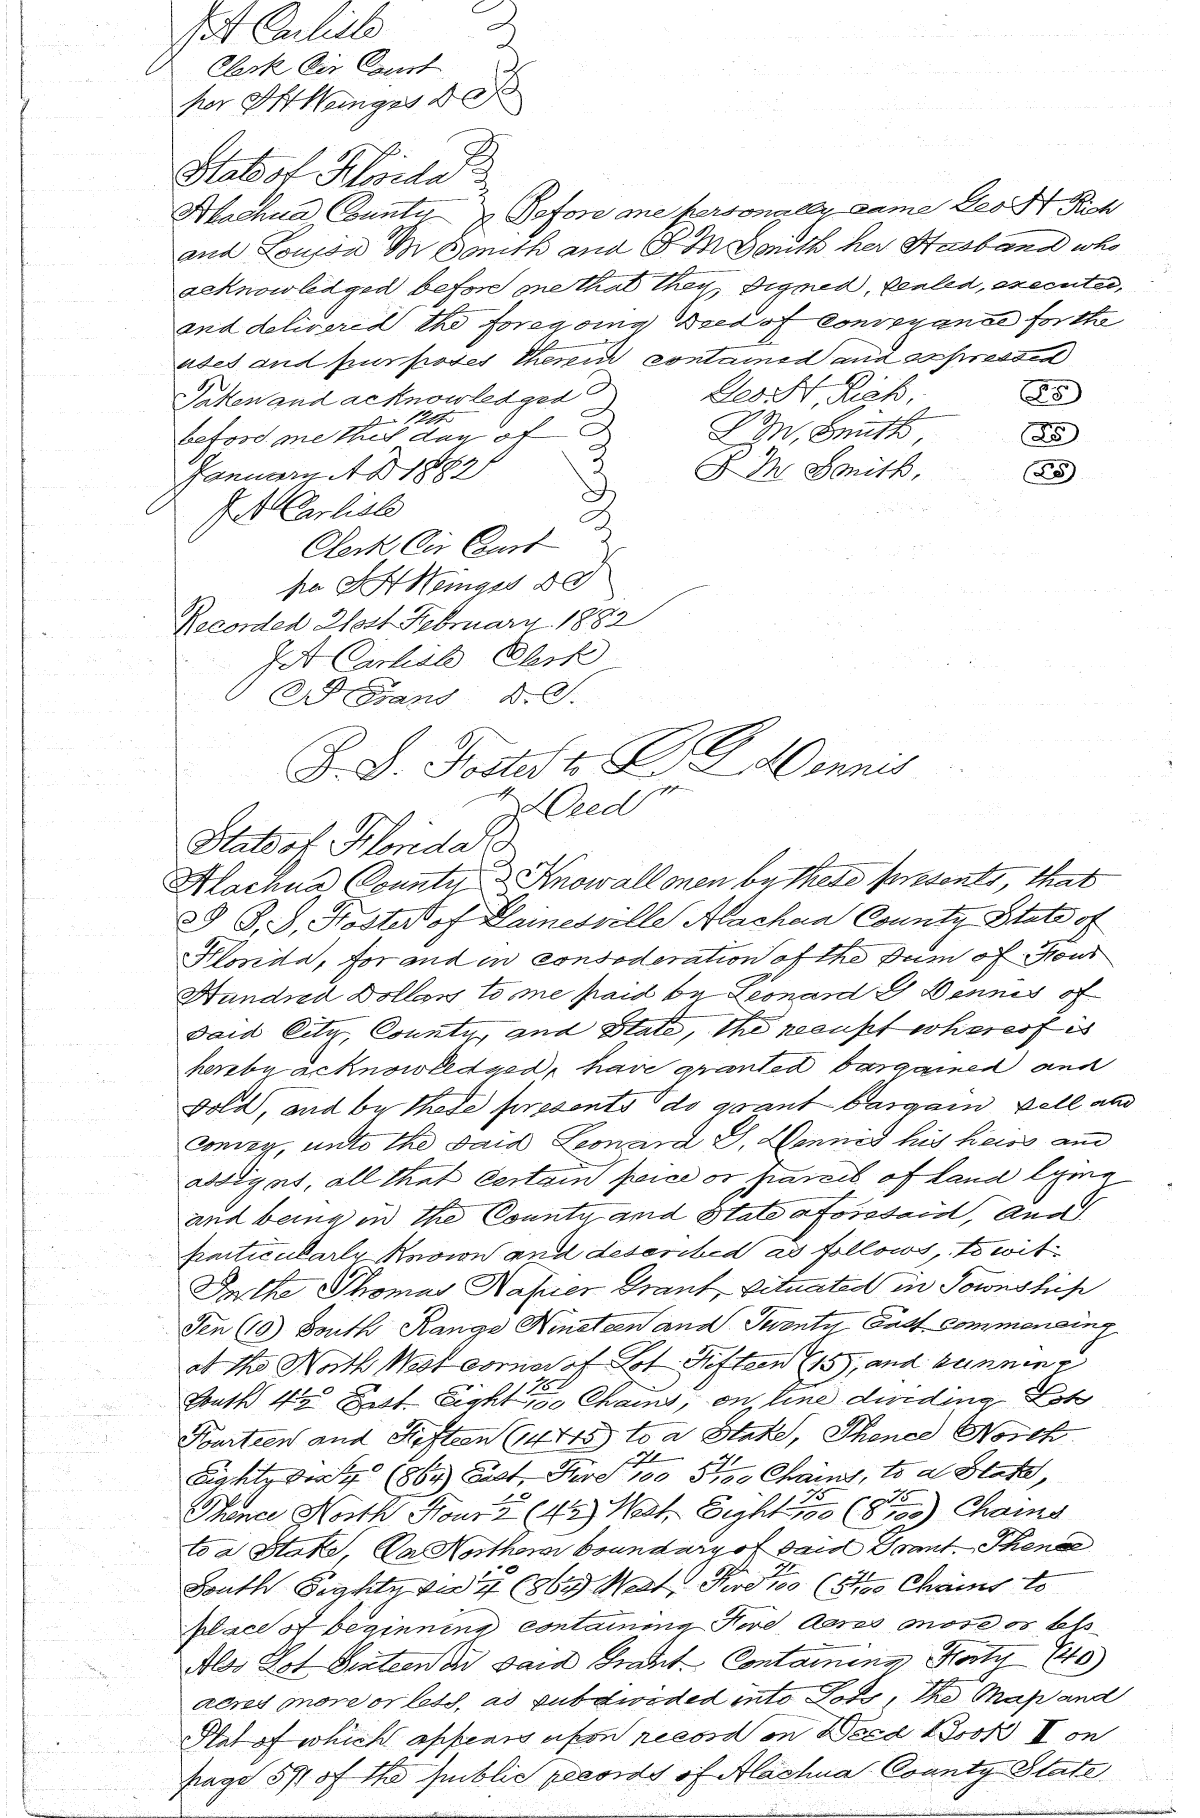 J A Carlisle
Clerk Cir Court
per S H Weinges D C
State of Florida
Alachua County Before me personally came Geo H Rich
and Louisa M Smith and P M Smith her Husband who
acknowledged before me that they, signed, sealed, executed,
and delivered the foregoing Deed of Conveyance for the
uses and purposes therein contained and expressed
Taken and acknowledged Geo. H, Rich, (LS)
before me this 12th day of L M, Smith, (LS)
January A D 1882 P M Smith, (LS)
J A Carlisle
Clerk Cir Court
per S H Weinges D C
Recorded 21st February 1882
J A Carlisle Clerk
Evans D. C.
F. S. Foster to L G Dennis
"Deed"
State of Florida
Alachua County Know all men by these presents, that
I F, S, Foster of Gainesville Alachua County State of
Florida, for and in consoderation of the sum of Four
Hundred Dollars to me paid by Leonard G Dennis of
said City, County, and State, the receipt whereof is
hereby acknowledged, have granted bargained and
sold, and by these presents do grant bargain sell and
convey, unto the said Leonard G. Dennis his heirs and
assigns, all that certain peice or parcel of land lying
and being in the County and State aforesaid, and
particularly known and described as follows, to wit:
In the Thomas Napier Grant, situated in Township
Ten (10) South Range Nineteen and Twenty East commencing
at the North West corner of Lot Fifteen (15), and running
South 4½° East Eight 75/100 Chains, on line dividing Lots
Fourteen and Fifteen (14 & 15) to a Stake, Thence North
Eighty six ¼° (86¼) East, Five 71/100 5 71/100 Chains, to a Stake,
Thence North Four ½° (4½) West, Eight 75/100 (8 75/100) Chains
to a Stake, On Northern boundary of said Grant. Thence
South Eighty six ¼° (86¼) West, Five 71/100 (5 71/100 Chains to
place of beginning containing Five Acres more or less
Also Lot Sixteen in said Grant. Containing Forty (40)
acres more or less, as subdivided into Lots, the Map and
Plat of which appears upon record on Deed Book I on
page 591 of the public records of Alachua County State